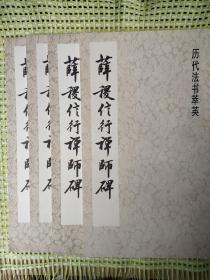 历代法书萃英
薛稷信行禅師碑
薛稷信行禅師碑
薛稷信行禅師碑
薛稷信行禅師碑